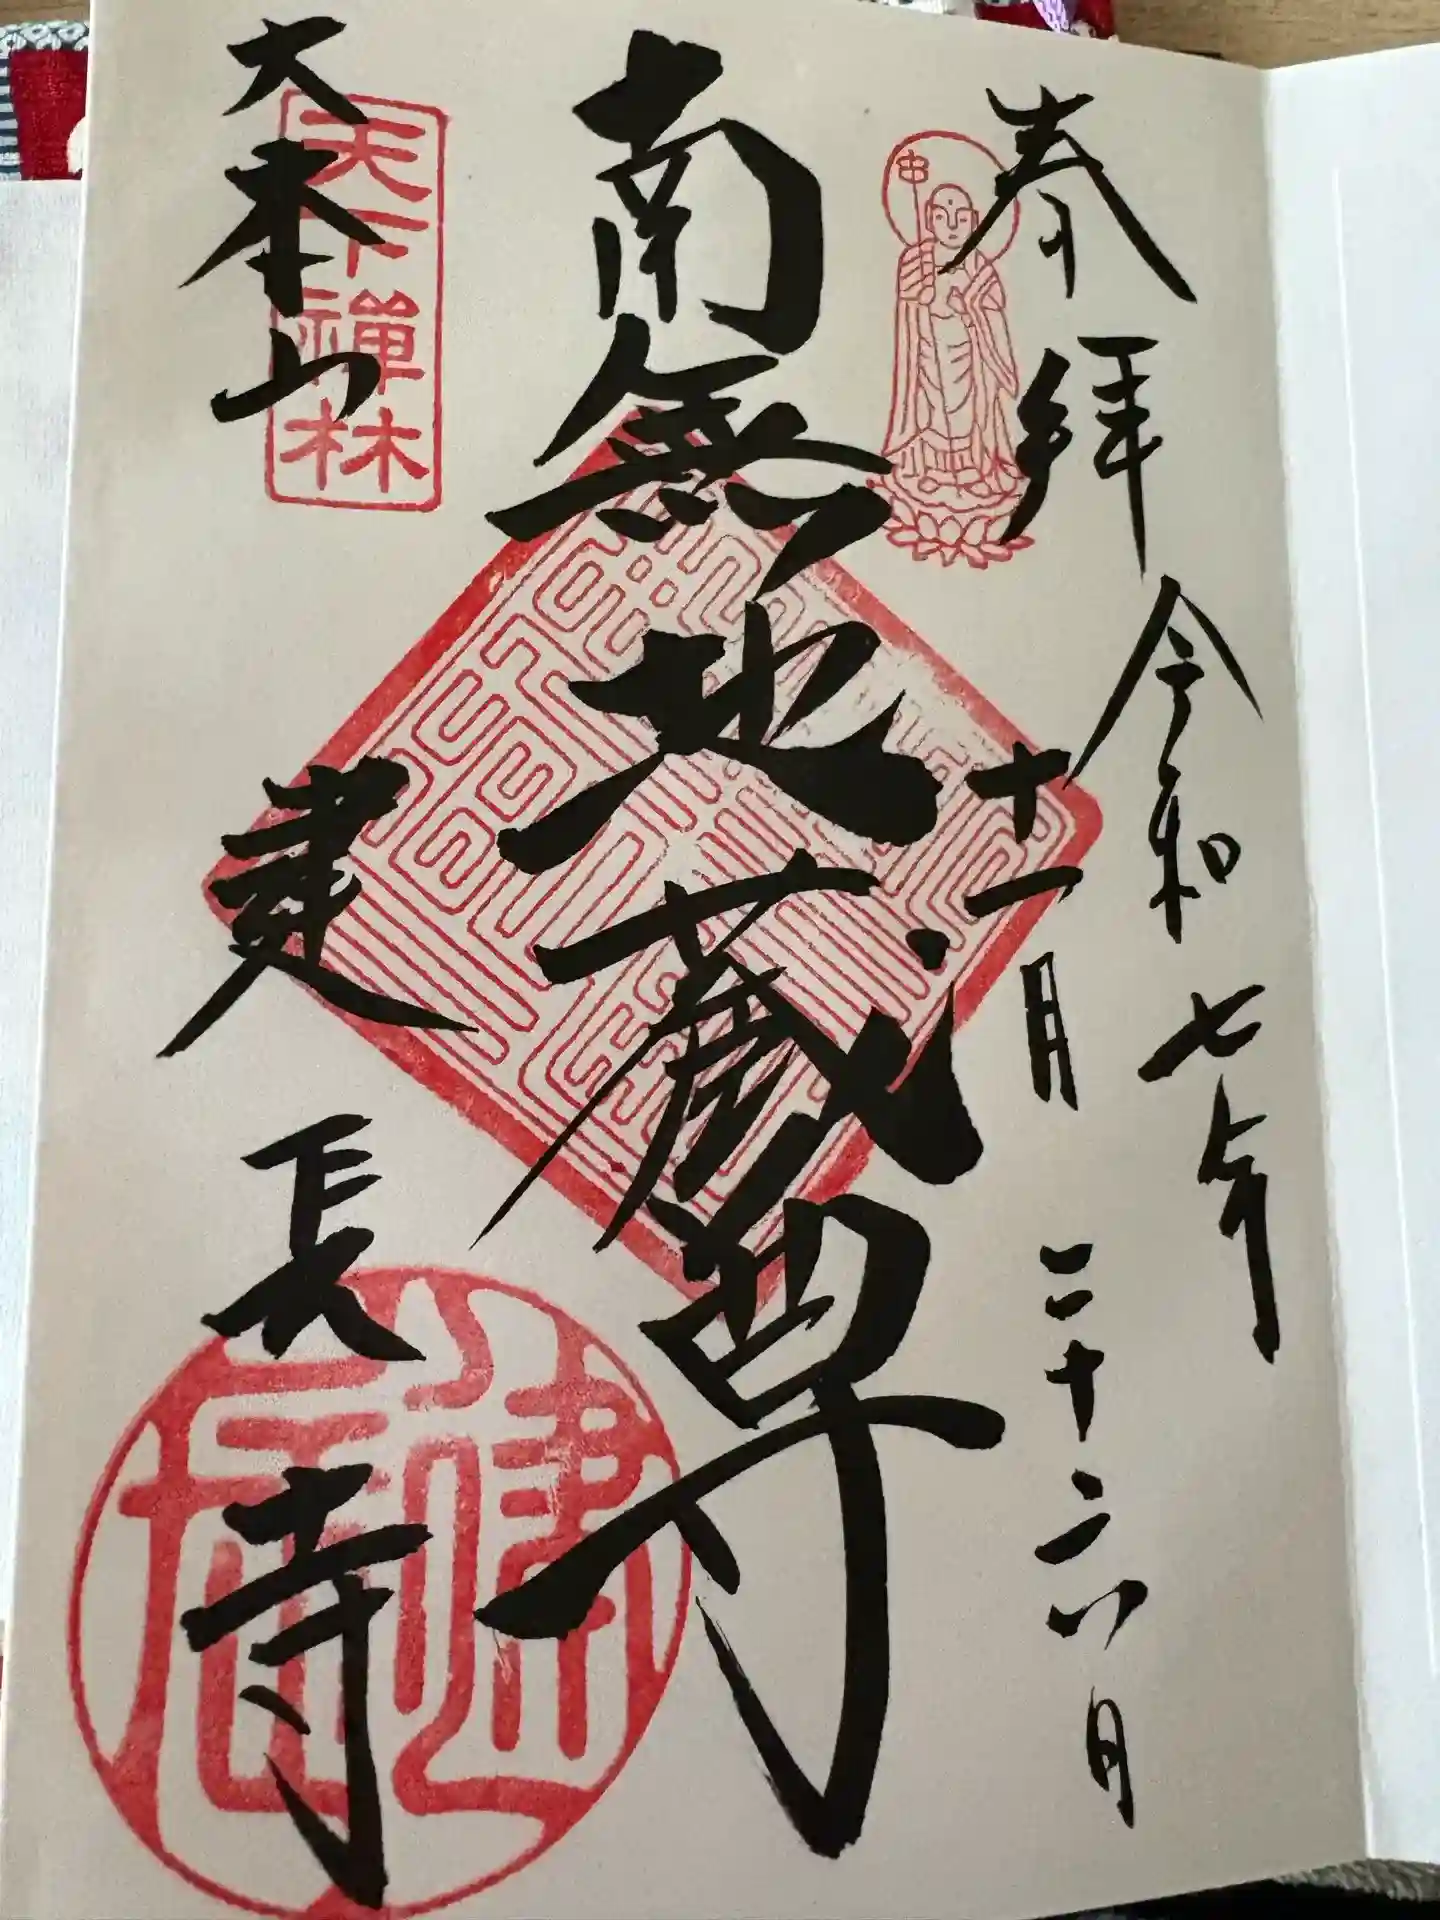 奉拝
令和七年
十一月二十六日
南無地蔵尊
天下禅林
大本山
建長寺